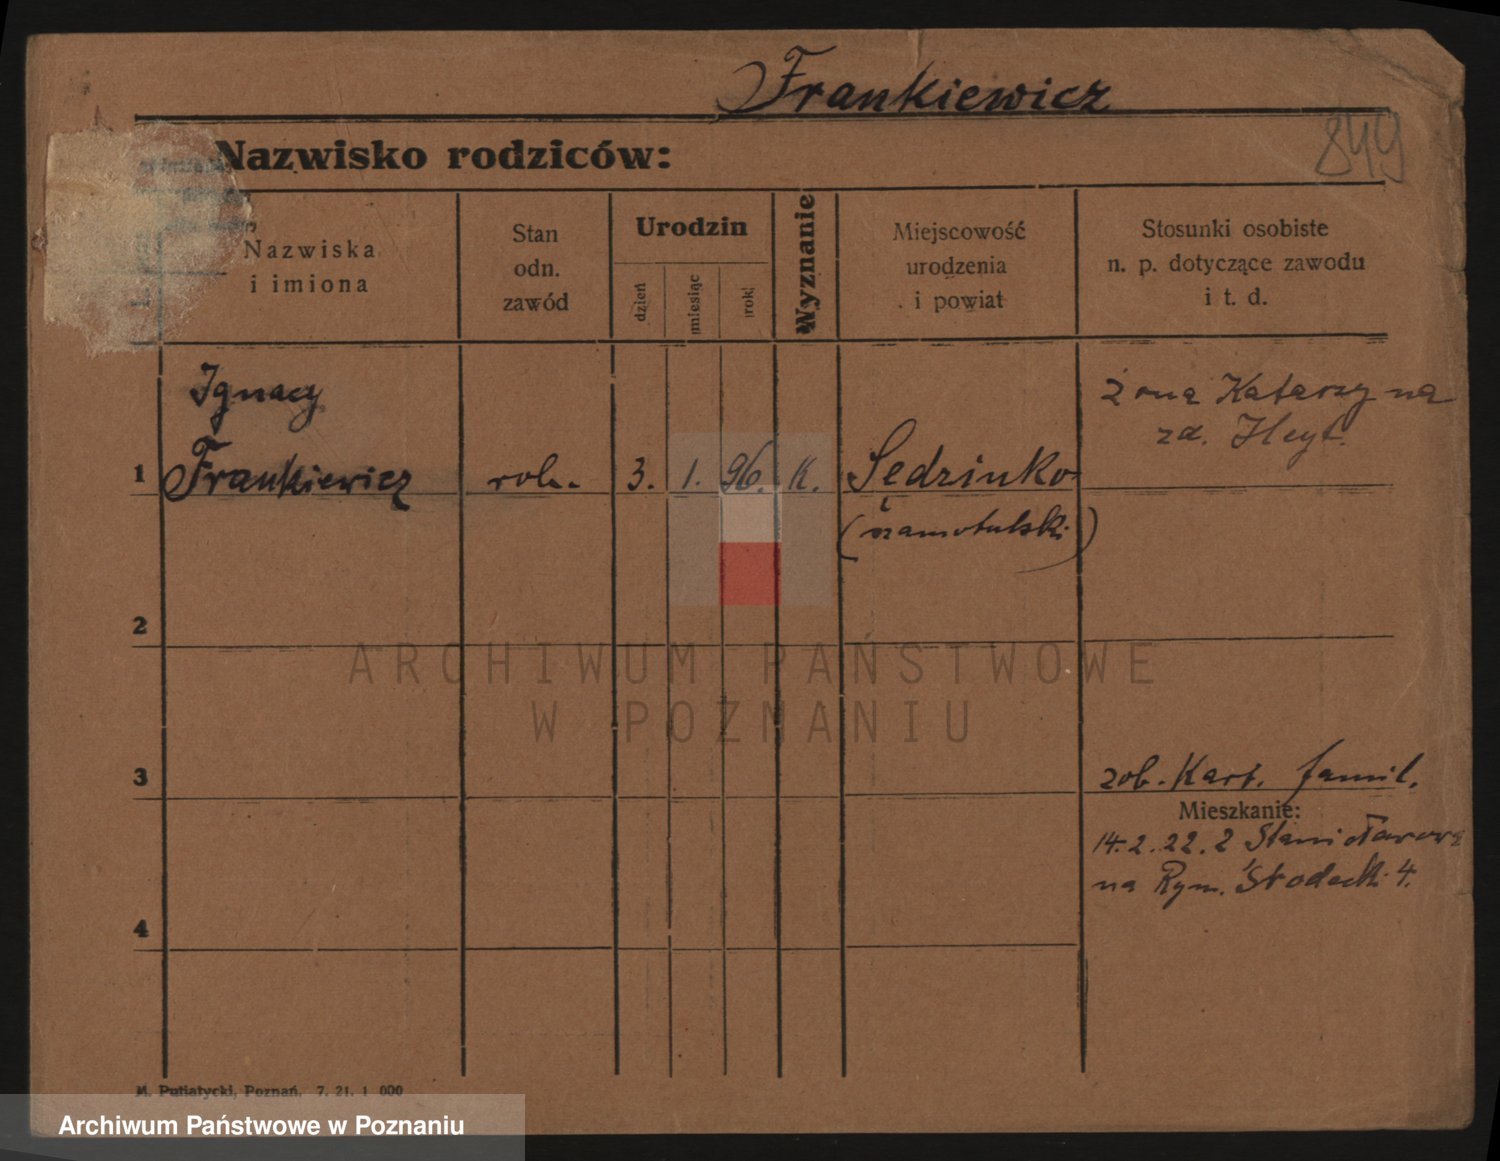 Frankiewicz
849
Nazwisko rodziców:
Nazwiska
i imiona
Stan
odn.
zawód
Urodzin
dzień
miesiąc
rok
Wyznanie
Miejscowość
urodzenia
i powiat
Stosunki osobiste
n. p. dotyczące zawodu
i t. d.
Ignacy
żona Katarzyna
zd. Heyt.
1 Frankiewicz rob. 3. 1. 96. K. Sędzinko
(szamotulski)
2
ARCHIWUM PAŃSTWOWE
W POZNANIU
3
zob. Kart. famil.
Mieszkanie:
14.2.22. z Stanisławowa
na Rym. Śródecki 4.
4
M. Putiatycki, Poznań. 7. 21. 1 000
Archiwum Państwowe w Poznaniu